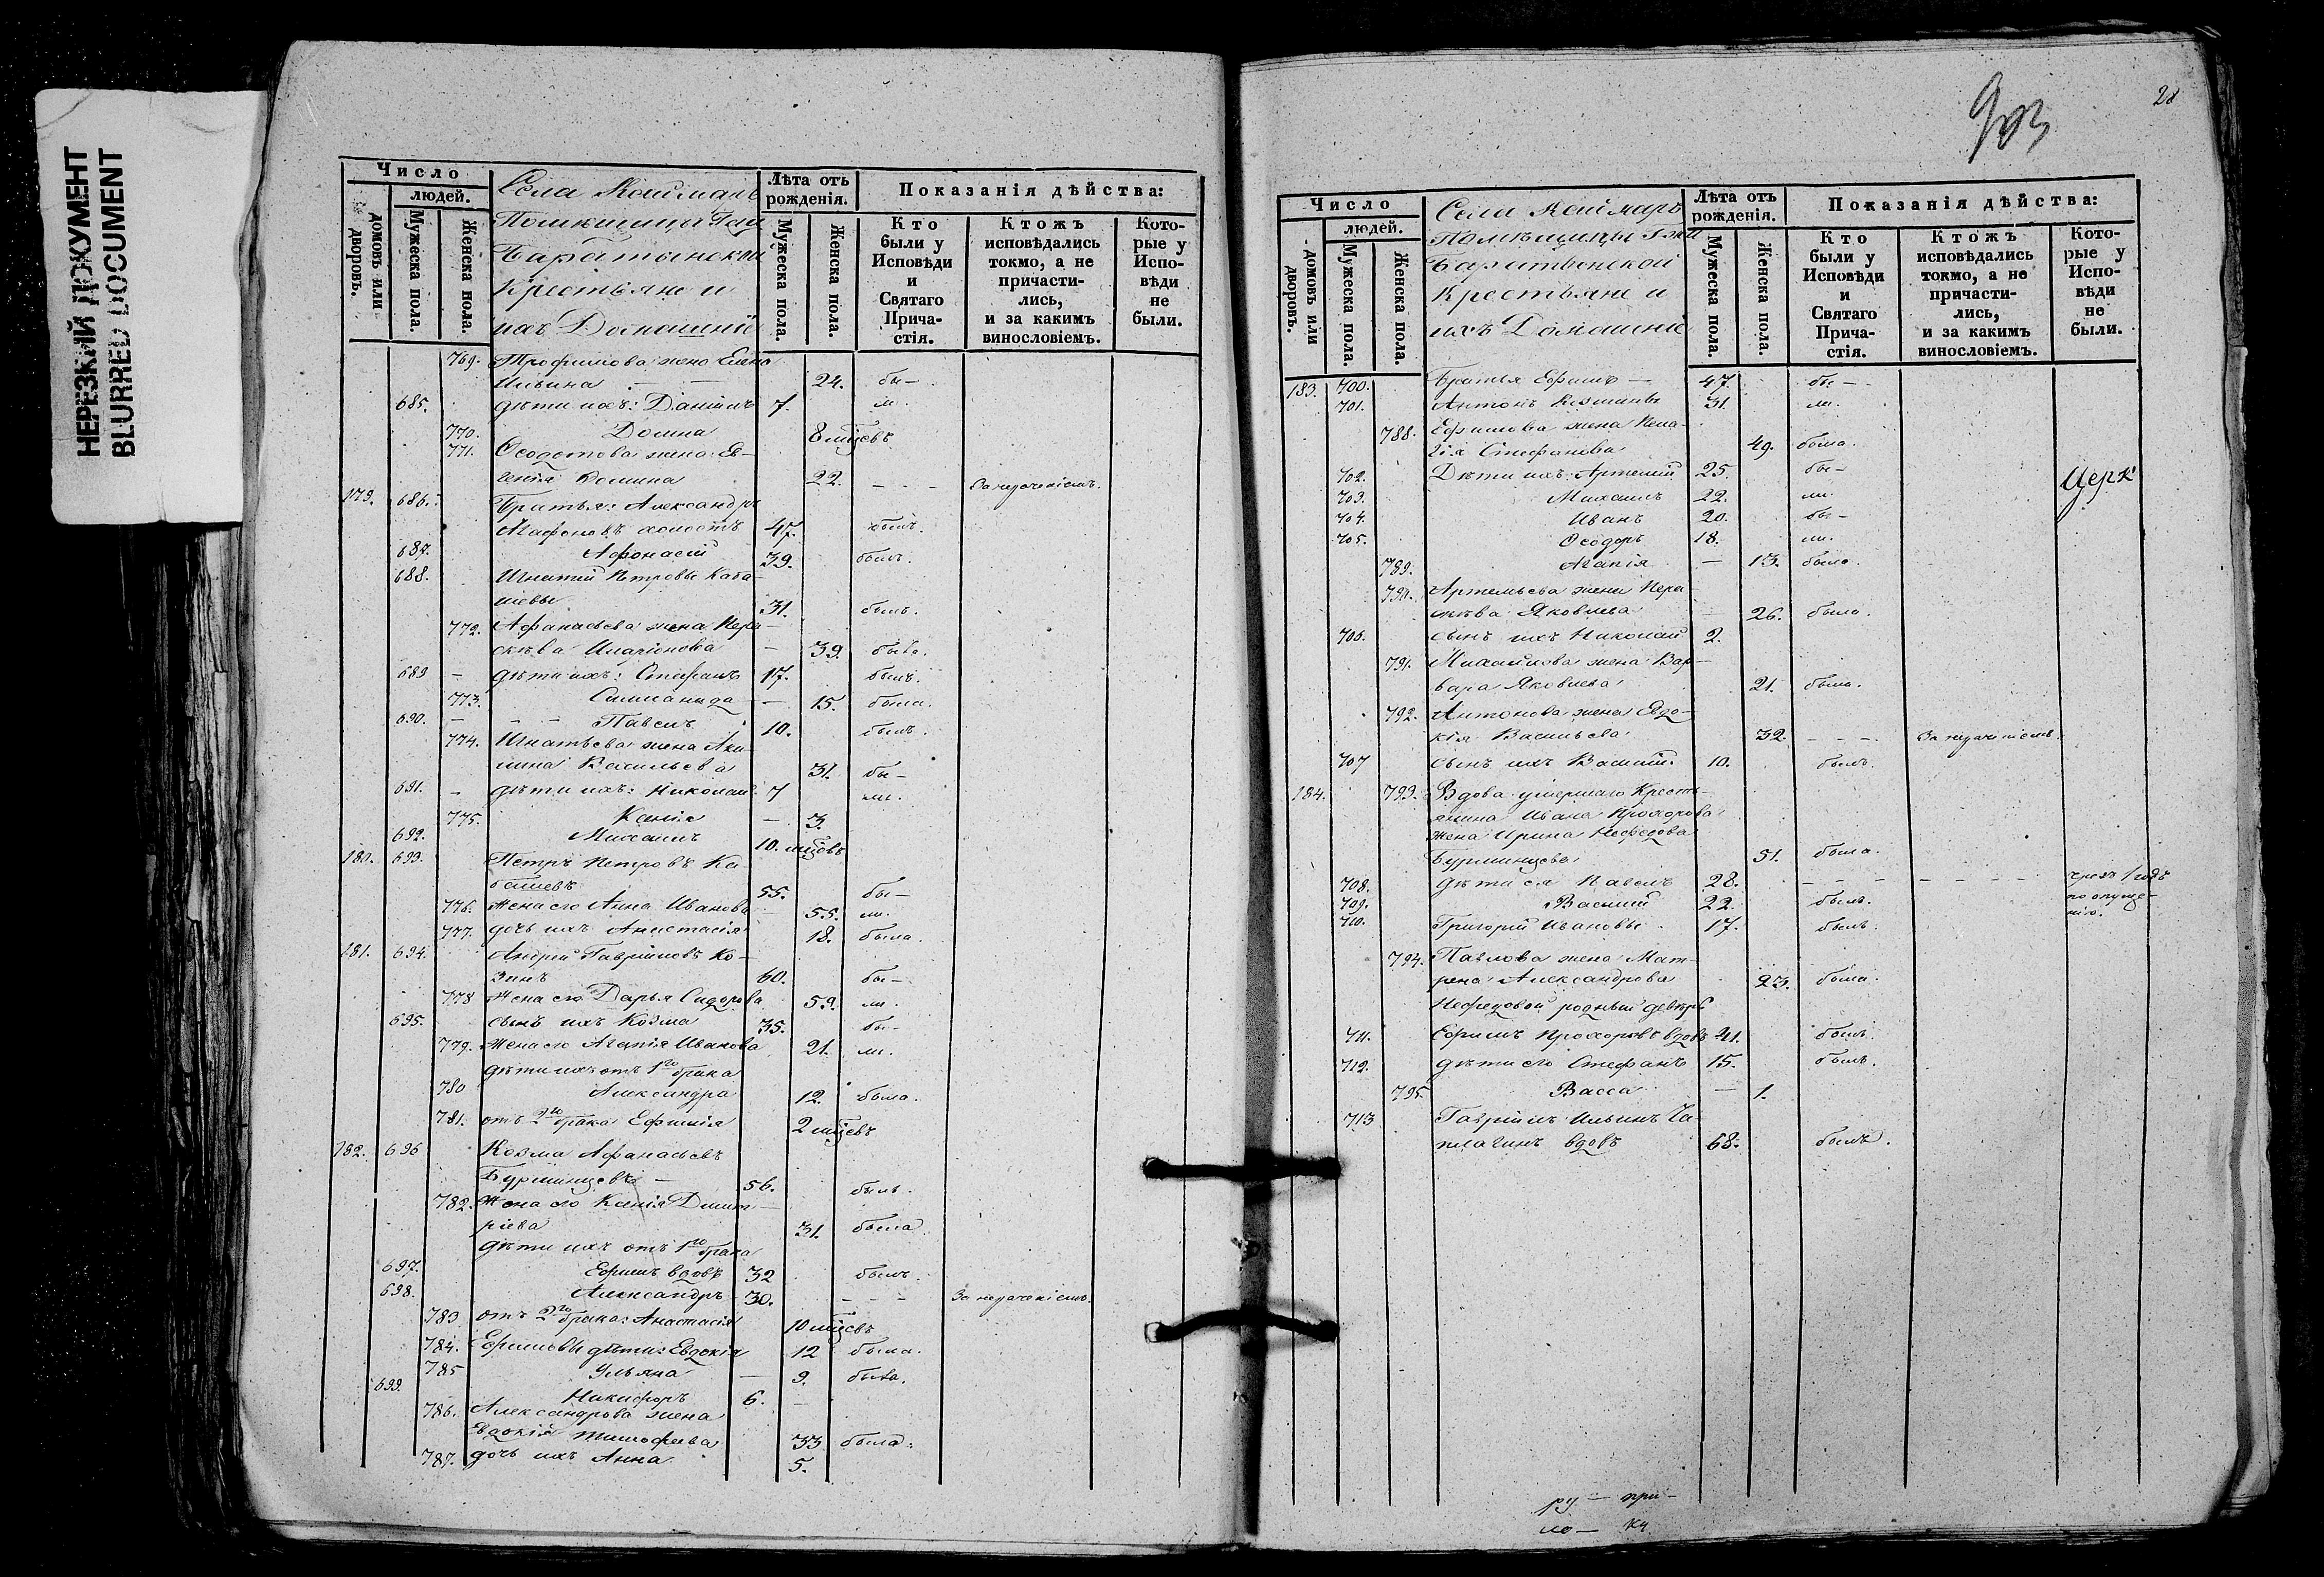 НЕРЕЗКИЙ ДОКУМЕНТ
BLURRED DOCUMENT
Число
людей.
домовъ или дворовъ.
Мужеска пола.
Женска пола.
Села Каймаръ
Помѣщицы Гжи
Баратынской
Крестьяне и
ихъ Домашніе
Лѣта отъ рожденія.
Мужеска пола.
Женска пола.
Показанія дѣйства:
Кто были у Исповѣди и Святаго Прича-стія.
Ктожъ исповѣдались токмо, а не причасти-лись, и за какимъ винословіемъ.
Кото-рые у Испо-вѣди не были.
769. Трофимова жена Елена
Ильина 24. бы-
685. дѣти ихъ: Даніилъ 7. ли.
770. Домна 8 мцевъ
771. Ѳеодотова жена Ев-
генія Фомина 22. - - - За нераченіемъ.
179. 686. Братья: Александръ
Агафоновъ холостъ 47. былъ.
687. Афонасій 39. былъ.
688. Игнатій Петровы Каба-
шевы 31. былъ.
772. Афанасьева жена Пара-
скѣва Иларіонова — 39. была.
689 - дѣти ихъ: Стефанъ 17. былъ.
773. Соломанида — 15. была.
690. - - - Павелъ 10. былъ.
774. Игнатьева жена Аку-
лина Васильева 31. бы-
691. - дѣти ихъ: Николай 7 ли.
775. Ксенія — 3.
692. Михаилъ 10. мцевъ
180. 693. Петръ Петровъ Ка-
башевъ 55. бы-
776. Жена его Анна Иванова 55. ли.
777. дочь ихъ Анастасія 18. была.
181. 694. Андрей Гавриловъ Ко-
зинъ 60. бы-
778 Жена его Дарья Сидорова 59. ли.
695. сынъ ихъ Козма 35. бы-
779. Жена его Агапія Иванова 21. ли.
дѣти ихъ отъ 1го брака
780 Александра 12. была.
781. отъ 2го брака Ефимія 2 мцевъ
182. 696 Козма Афанасьевъ
Бурминцевъ — 56. былъ.
782. Жена его Ксенія Димит-
ріева 31. была
дѣти ихъ отъ 1го брака
697. Ефимъ вдовъ 32 былъ.
698. Александръ 30. - - - За нераченіемъ.
783. отъ 2го брака: Анастасія 10 мцевъ
784. Ефимовы дѣти: Евдокія 12 была.
785 Ульяна — 9. была.
699. Никифоръ 6. —
786. Александрова жена
Евдокія Тимофеева 33 была.
787. дочь ихъ Анна 5.
28
Число
людей.
домовъ или дворовъ.
Мужеска пола.
Женска пола.
Села Каймаръ
Помѣщицы Гжи
Баратынской
Крестьяне и
ихъ Домашніе
Лѣта отъ рожденія.
Мужеска пола.
Женска пола.
Показанія дѣйства:
Кто были у Исповѣди и Святаго Прича-стія.
Ктожъ исповѣдались токмо, а не причасти-лись, и за какимъ винословіемъ.
Кото-рые у Испо-вѣди не были.
183. 700. Братья Ефимъ — 47. бы-
701. Антонъ Козмины 31. ли.
788. Ефимова жена Пела-
гія Стефанова 49. была.
702. Дѣти ихъ: Артемій 25. бы-
Церк
703. Михаилъ 22. ли.
704. Иванъ 20. бы-
705. Ѳеодоръ 18. ли.
789. Агапія — 13. была.
790. Артемьева жена Пара-
скѣва Яковлева 26. была.
706. сынъ ихъ Николай 2.
791. Михайлова жена Вар-
вара Яковлева 21. была.
792. Антонова жена Евдо-
кія Васильева 32. - - - За нераченіемъ.
707 сынъ ихъ Василій 10. былъ.
184. 793. Вдова умершаго Кресть-
янина Ивана Прохорова
жена Ирина Нефедова
Бурминцева 51. была.
708. дѣти ея Павелъ 28. - - - - - - чрезъ 1 годъ
по опуще-
нію.
709. Василій 22. былъ.
710. Григорій Ивановы 17. былъ.
794. Павлова жена Мат-
рена Александрова 23. была.
Нефедовой родный деверь
711. Ефимъ Прохоровъ вдовъ 41. былъ.
712. дѣти его Стефанъ 15. былъ.
795. Васса — 1.
713 Гавріилъ Ильинъ Ча-
плагинъ вдовъ 68. былъ.
ру — при-